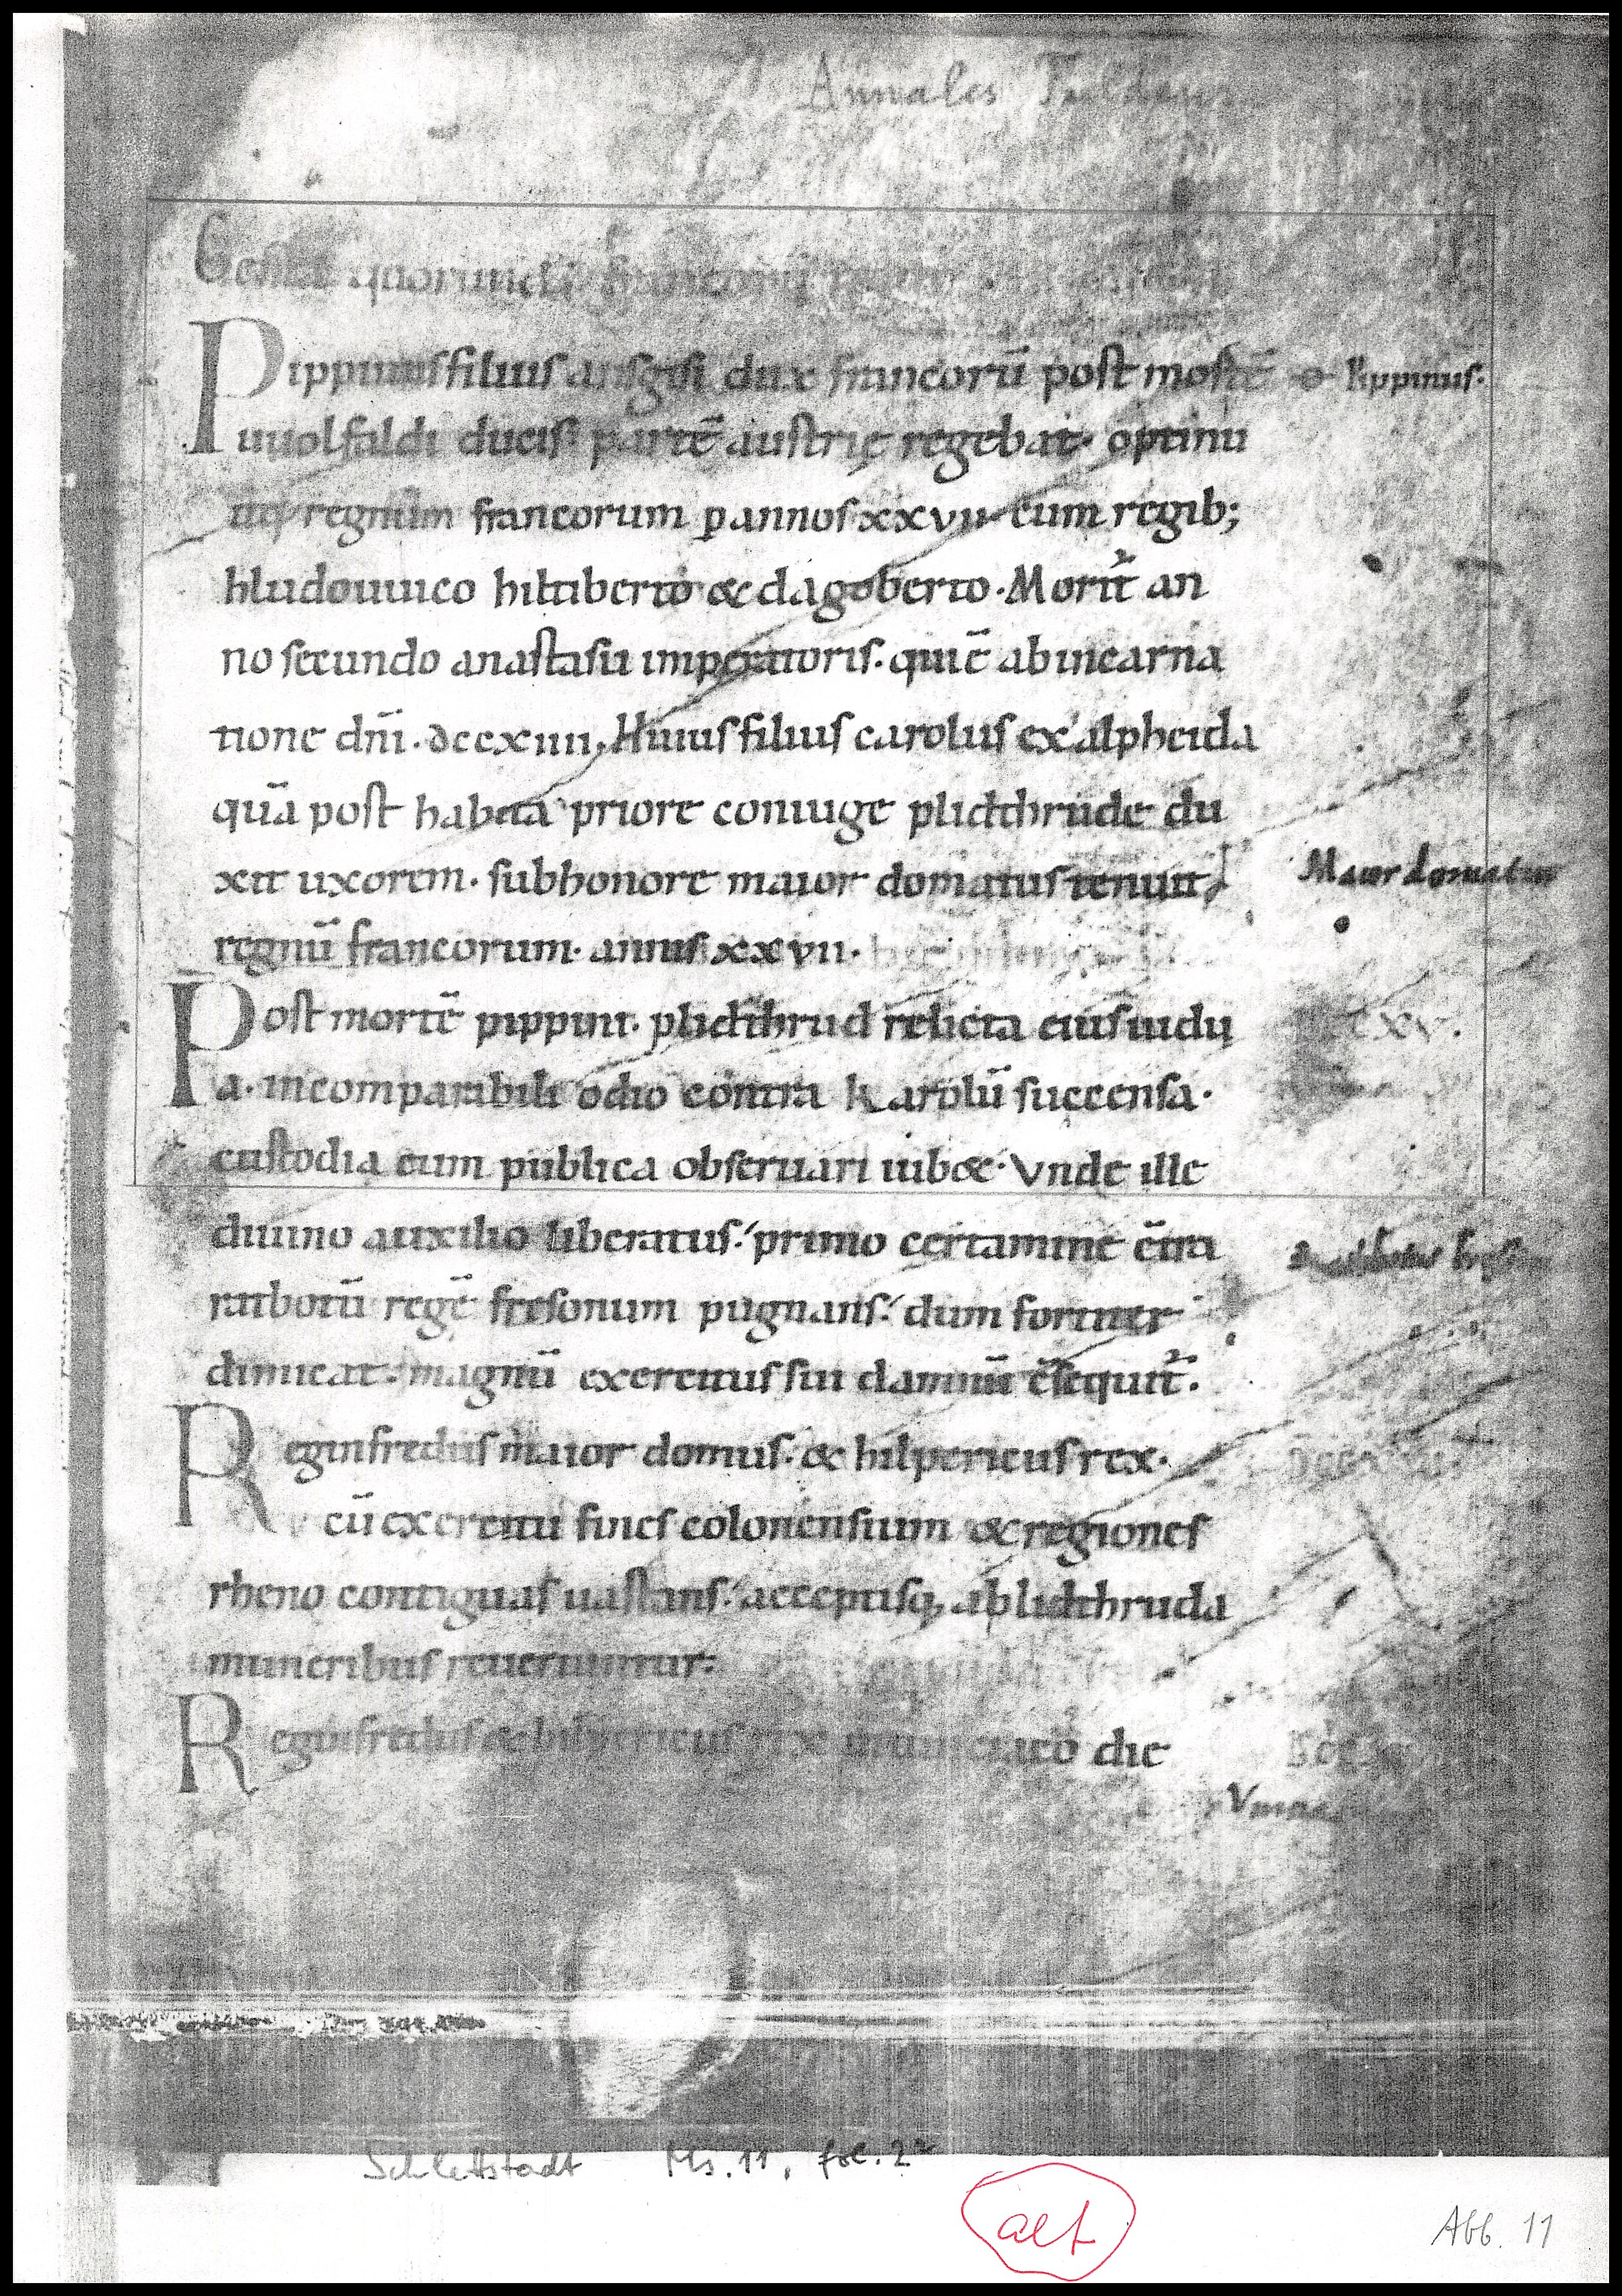 Annales Fuldens
Gesta quorundã francorũ
Pippinus filius ansgisi dux francorũ post mortẽ Pippinus.
uuolfaldi ducis partẽ austrię regebat. optinu
itq; regnum francorum ꝑ annos xxvii. cum regib;
hludouuico hiltiberto & dagoberto. Morit᷒ an
no secundo anastasii imperatoris. qui ẽ ab incarna
tione dñi. dccxiiii. Huius filius carolus ex alpheida
quã post habita priore coniuge plidthrude du
xit uxorem. sub honore maior domatus tenuit Maior domatus
regnũ francorum. annis xxvii.
Post mortẽ pippini. plidthrud relicta eius uidu
a. incomparabili odio contra Karolũ succensa.
custodia eum publica obseruari iub&. Vnde ille
diuino auxilio liberatus. primo certamine c̃tra
ratbotũ regẽ fresonum pugnans. dum fortiter
dimicat. magnũ exercitus sui damnũ c̃sequit᷒.
Reginfredus maior domus. & hilpericus rex.
cũ exercitu fines coloniensium & regiones
rheno contiguas uastans. acceptisq; a blidthruda
muneribus reuertuntur.
Reginfredus & hilpericus rex die
Schlettstadt Ms. 11, fol. 2r
alt
Abb. 11